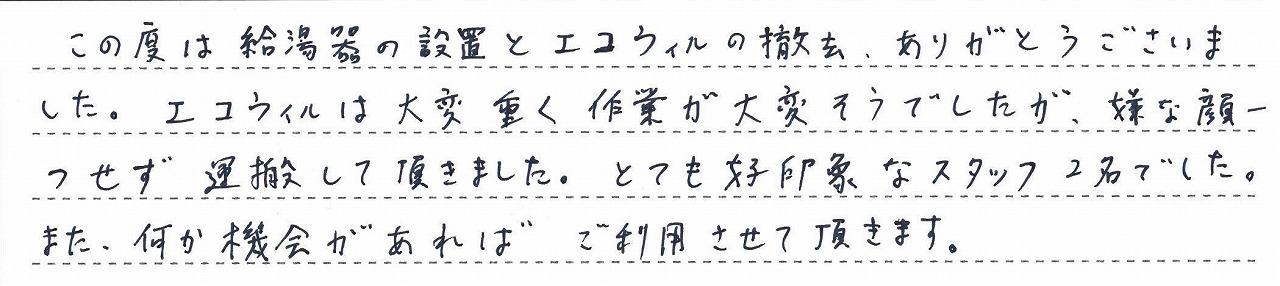 この度は給湯器の設置とエコウィルの撤去、ありがとうございま
した。エコウィルは大変重く作業が大変そうでしたが、嫌な顔一
つせず運搬して頂きました。とても好印象なスタッフ2名でした。
また、何か機会があればご利用させて頂きます。